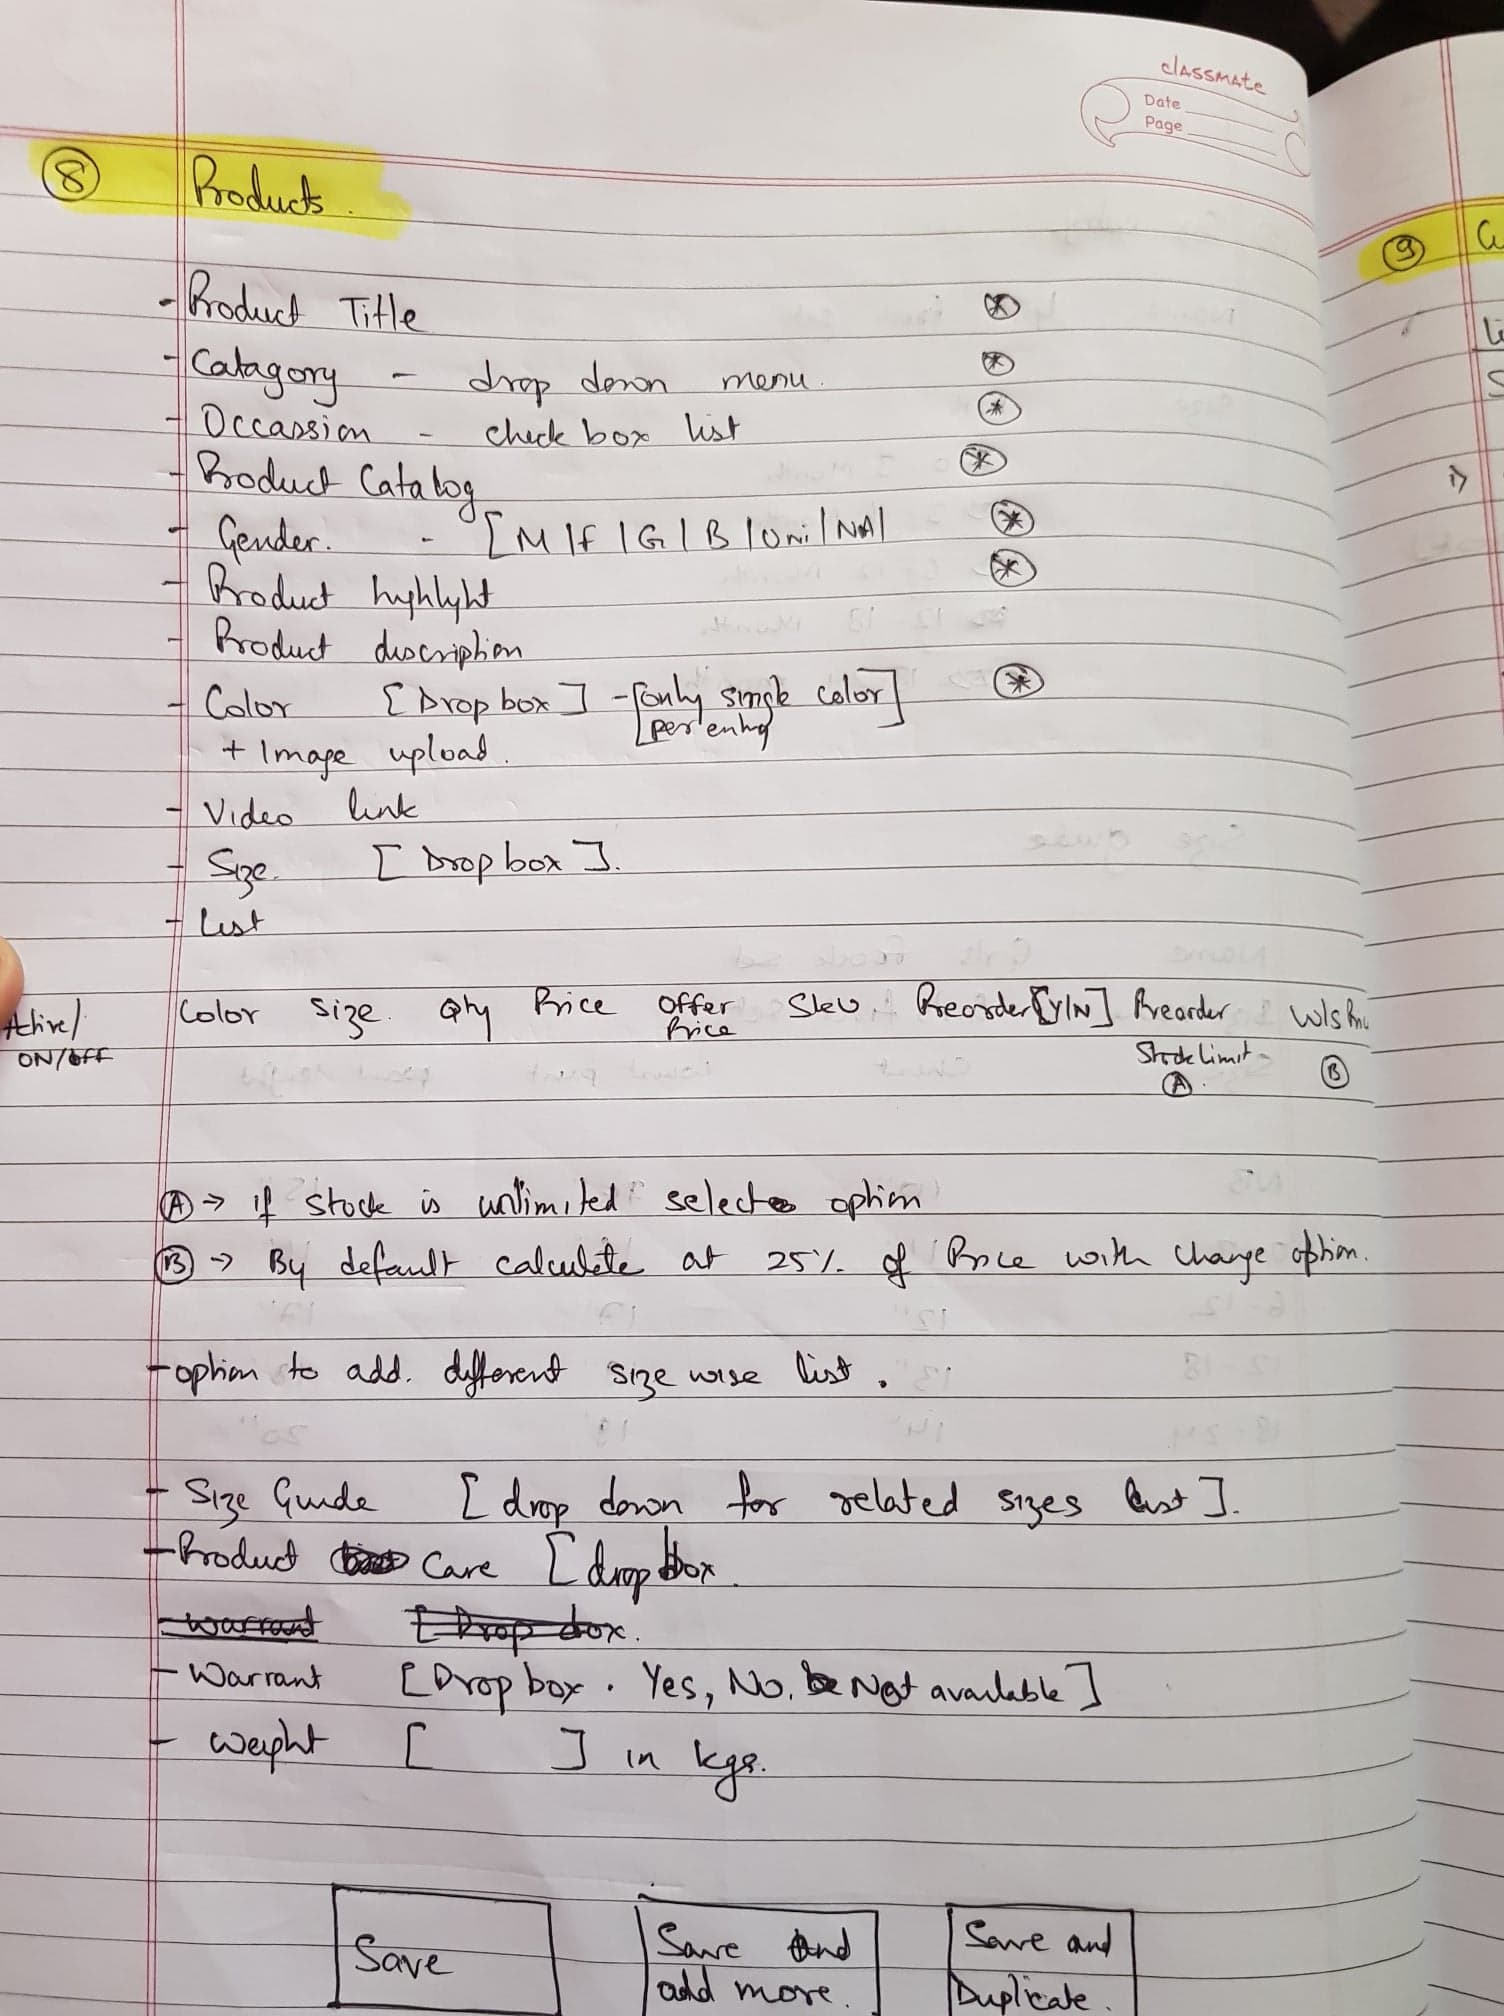 classmate
Date
Page
8 Products.
- Product Title *
- Catagory - drop down menu. *
- Occassion - check box list *
- Product Catalog *
- Gender. - [M | F | G | B | Uni | NA | *
- Product highlyht *
- Product discription
- Color [Drop box] - [only single color] *
[per entry
+ Image upload.
- Video link
- Size. [Drop box].
- List
Active/ Color Size. Qty Price Offer SKU. Preorder [Y/N] Preorder W/s
ON/OFF Price Stock Limit
A. B
A → if stock is unlimited select option
B → By default calculate at 25% of Price with change option.
- option to add. different size wise list.
- Size Guide [drop down for related sizes list].
- Product Care [drop box.
- Warrant [Drop box.
- Warrant [Drop box. Yes, No, Not available]
- Weight [ ] in kgs.
Save
Save And
add more.
Save and
Duplicate.
9